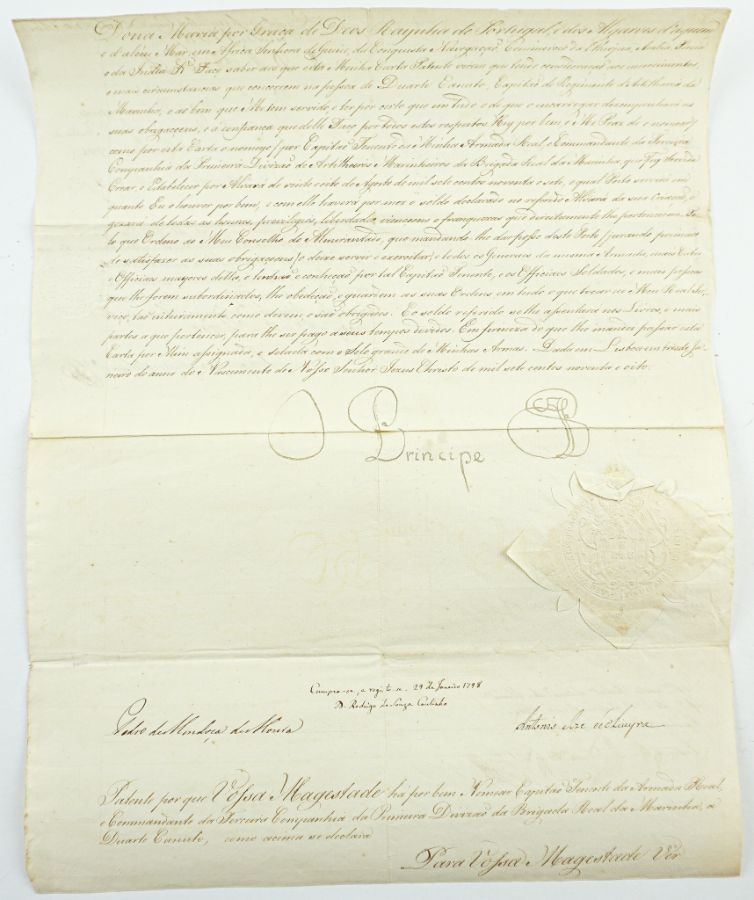 Dona Maria por Graça de Deos Raynha de Portugal, e dos Algarves, d'aquem
e d'além Mar, em Africa Senhora de Guiné, da Conquista Navegação, Commercio da Ethiopia, Arabia, Persia
e da India &c. Faço saber aos que esta Minha Carta Patente virem que tendo consideração aos merecimentos,
e mais circunstancias que concorrem na pessoa de Duarte Canuto, Capitão do Regimento de Artilheria da
Marinha, e ao bem que Me tem servido, e ter por certo que em tudo o de que o incarregar desempenhará as
suas obrigaçoens, e a confiança que delle Faço por todos estes respeitos Hey por bem, e Me Praz de o nomear/
como por esta Carta o nomeyo/ por Capitão Tenente da Minha Armada Real, e Commandante da Terceira
Companhia da Primeira Divizão de Artilheiros Marinheiros da Brigada Real da Marinha, que Fuy servida
Crear, e Estabelecer por Alvará de vinte oito de Agosto de mil sete centos noventa e sete, o qual Posto servirá em
quanto Eu o houver por bem, e com elle haverá por mez o soldo declarado no referido Alvará da sua Creação, e
gozará de todas as honras, privilegios, liberdades, izençoens, e franquezas que directamente lhe pertencerem. Pe-
lo que Ordeno ao Meu Conselho do Almirantado, que mandando-lhe dar posse deste Posto / jurando primeiro
de satisfazer as suas obrigaçoens / o deixe servir e exercitar; e todos os Generaes da mesma Armada, mais Cabos
e Officiaes mayores della, o tenhão e conheção por tal Capitão Tenente, e os Officiaes Soldados, e mais pessoas
que lhe forem subordinados, lhe obedeção, e guardem as suas Ordens, em tudo o que tocar ao Meu Real Ser-
viço, tão inteiramente como devem, e são obrigados. E o soldo referido se lhe assentará nos Livros, e mais
partes a que pertencer, para lhe ser pago a seus tempos devidos. Em firmeza do que lhe mandei passar esta
Carta por Mim assignada, e sellada com o Sello grande de Minhas Armas. Dada em Lisboa em tres de Ja-
neiro do anno do Nascimento de Nosso Senhor Jezus Christo de mil sete centos noventa e oito.
Principe
Cumpra-se, e registe-se. 29 de Janeiro 1798
D. Rodrigo de Souza Coutinho
Pedro de Mendoça de Moura
Antonio Joze de
Patente por que Vossa Magestade ha por bem Nomear Capitão Tenente da Armada Real,
e Commandante da Terceira Companhia da Primeira Divizão da Brigada Real da Marinha, a
Duarte Canuto, como acima se declara
Para Vossa Magestade Ver